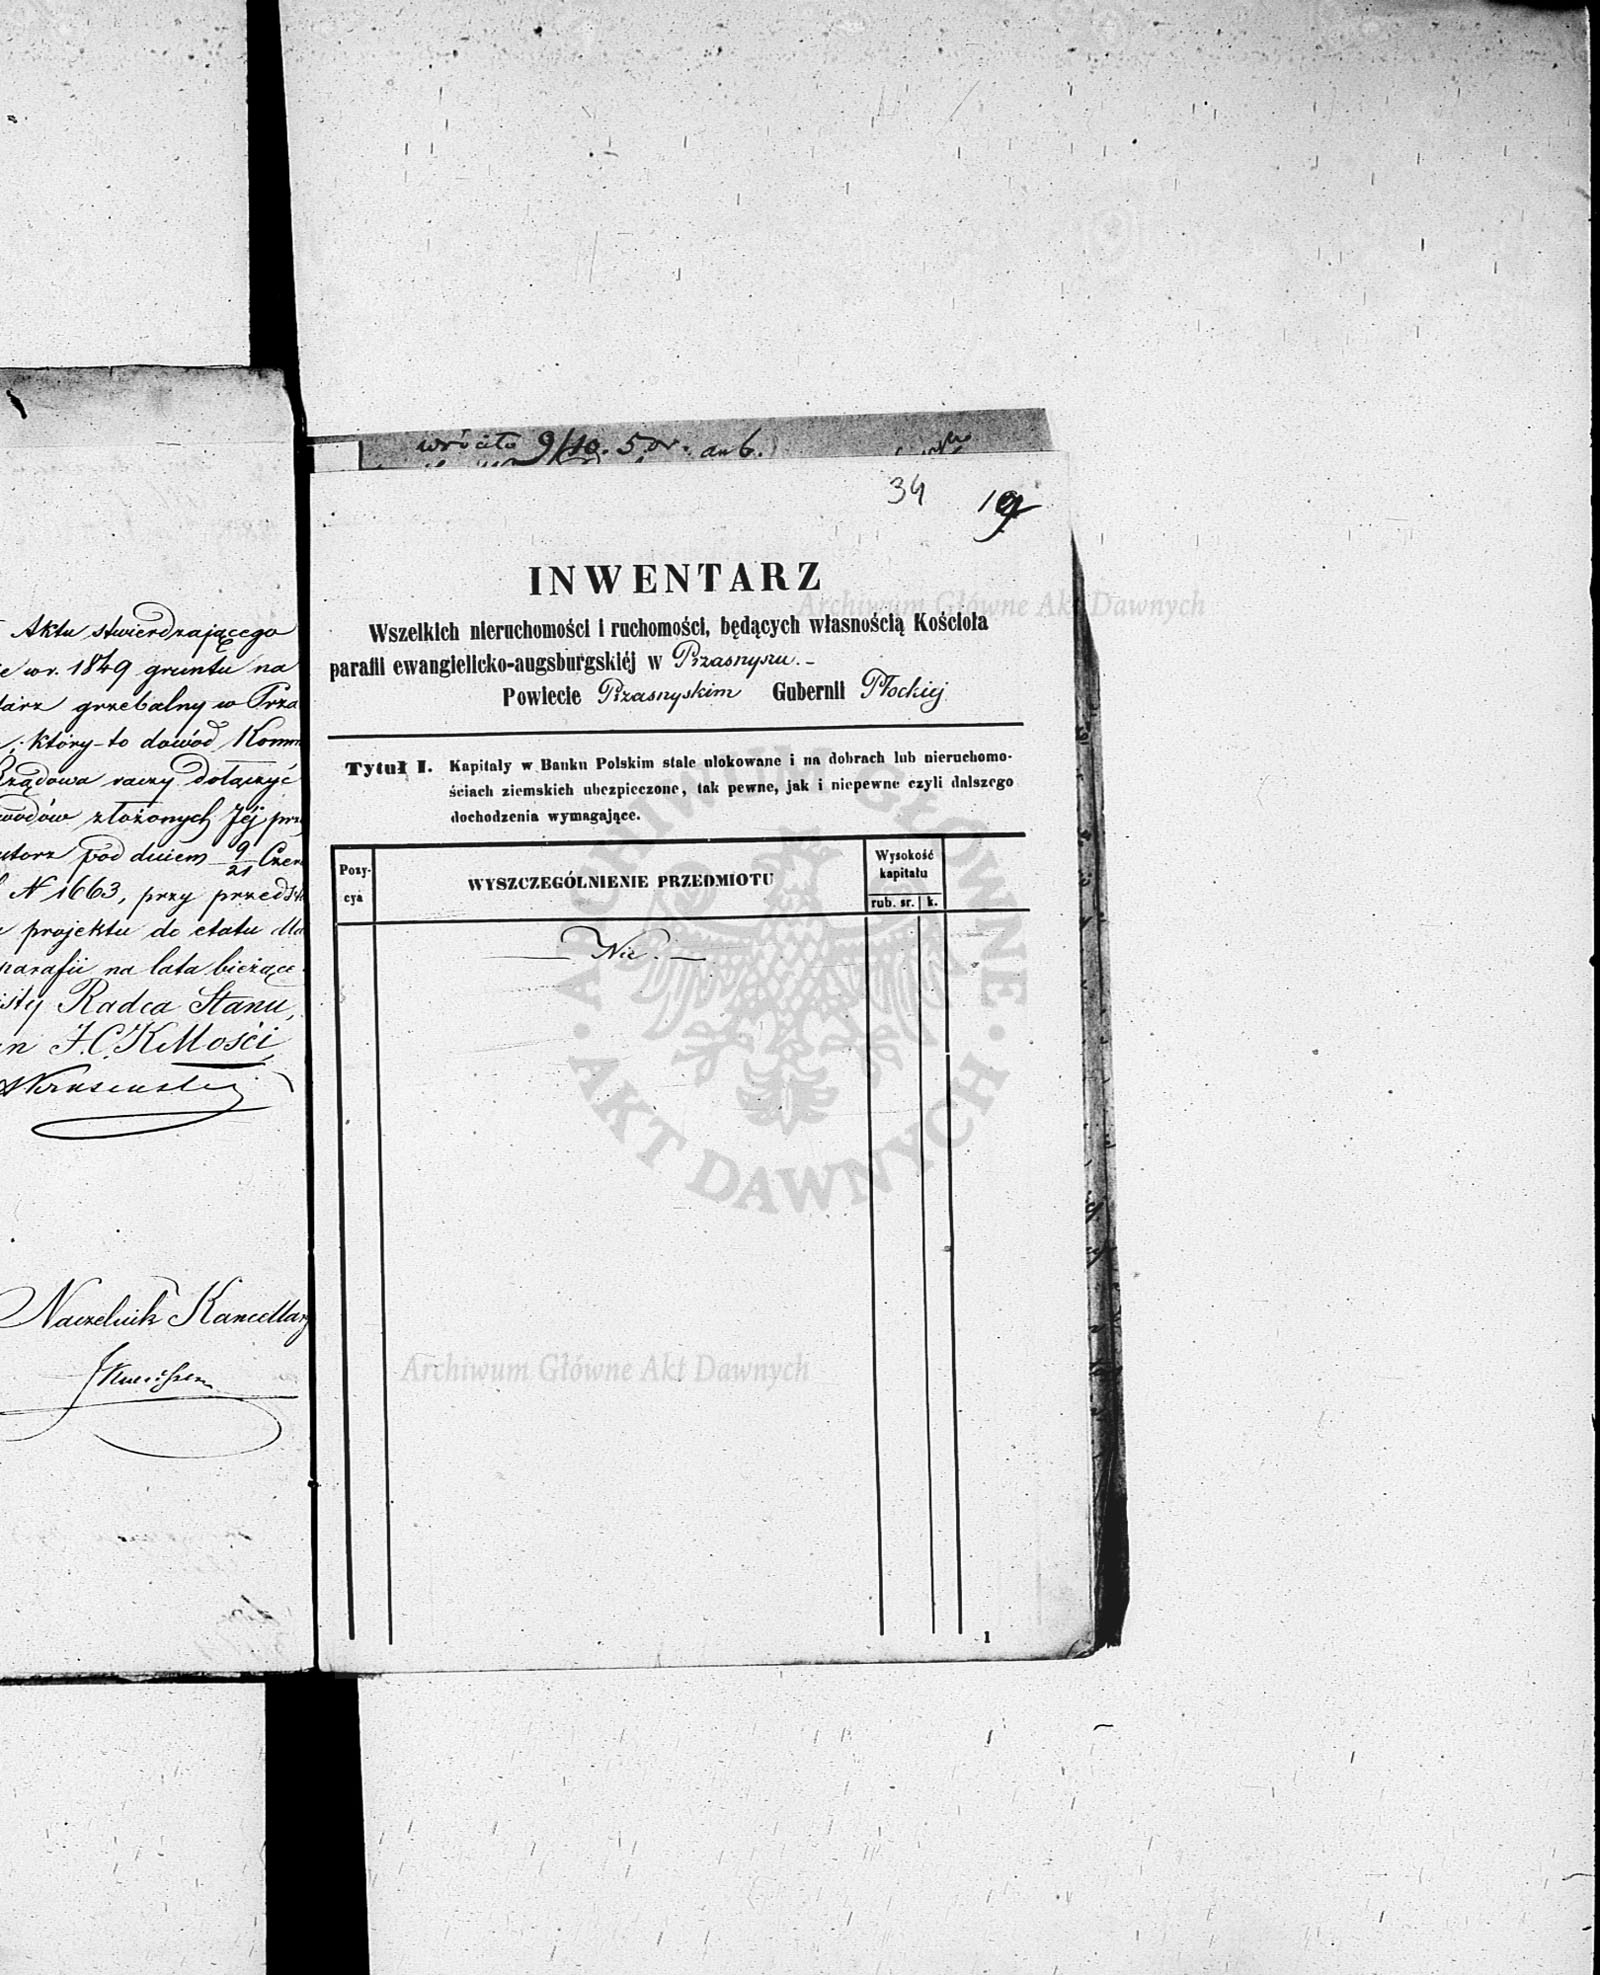 Aktu stwierdzającego
w r. 1849 gruntu na
grzebalny w Prza
który-to dowód Komm
Rządowa raczy dołączyć
złożonych Jéj prz
pod dniem 9/21 Czer
N 1663, przy przedsta
projektu do etatu dla
parafii na lata bieżące
Radca Stanu,
J. C. K. Mości
Naczelnik Kancellar
wróciło 9/10. 5
34
19
INWENTARZ
Wszelkich nieruchomości i ruchomości, będących własnością Kościoła
parafii ewangielicko-augsburgskiéj w Przasnyszu.-
Powiecie Przasnyskim Gubernii Płockiej
Tytuł I. Kapitały w Banku Polskim stale ulokowane i na dobrach lub nieruchomo-
ściach ziemskich ubezpieczone, tak pewne, jak i niepewne czyli dalszego
dochodzenia wymagające.
Pozy-
cya
WYSZCZEGÓLNIENIE PRZEDMIOTU
Wysokość
kapitału
rub. sr. k.
Nic.
1
Archiwum Główne Akt Dawnych
ARCHIWUM GŁÓWNE
AKT DAWNYCH
Archiwum Główne Akt Dawnych